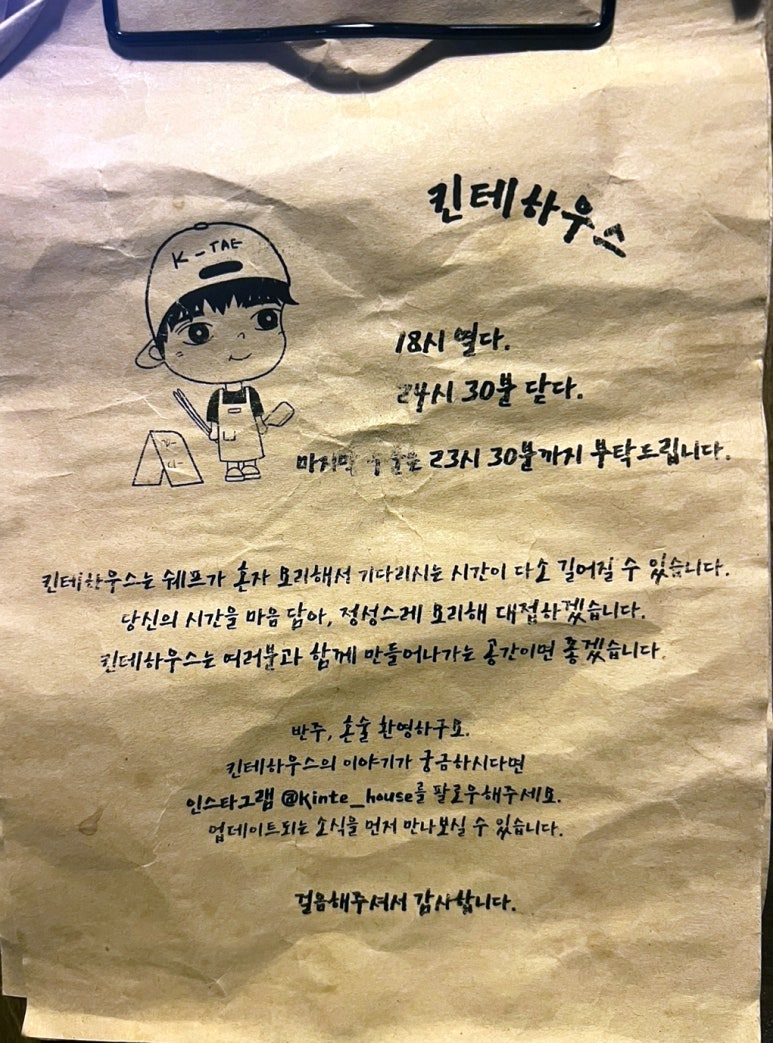 킨테하우스
K-TAE
18시 열다.
24시 30분 닫다.
마지막 23시 30분까지 부탁드립니다.
킨테하우스는 쉐프가 혼자 요리해서 기다리시는 시간이 다소 길어질 수 있습니다.
당신의 시간을 마음 담아, 정성스레 요리해 대접하겠습니다.
킨테하우스는 여러분과 함께 만들어나가는 공간이면 좋겠습니다.
반주, 혼술 환영하구요.
킨테하우스의 이야기가 궁금하시다면
인스타그램 @kinte_house를 팔로우해주세요.
업데이트되는 소식을 먼저 만나보실 수 있습니다.
걸음해주셔서 감사합니다.